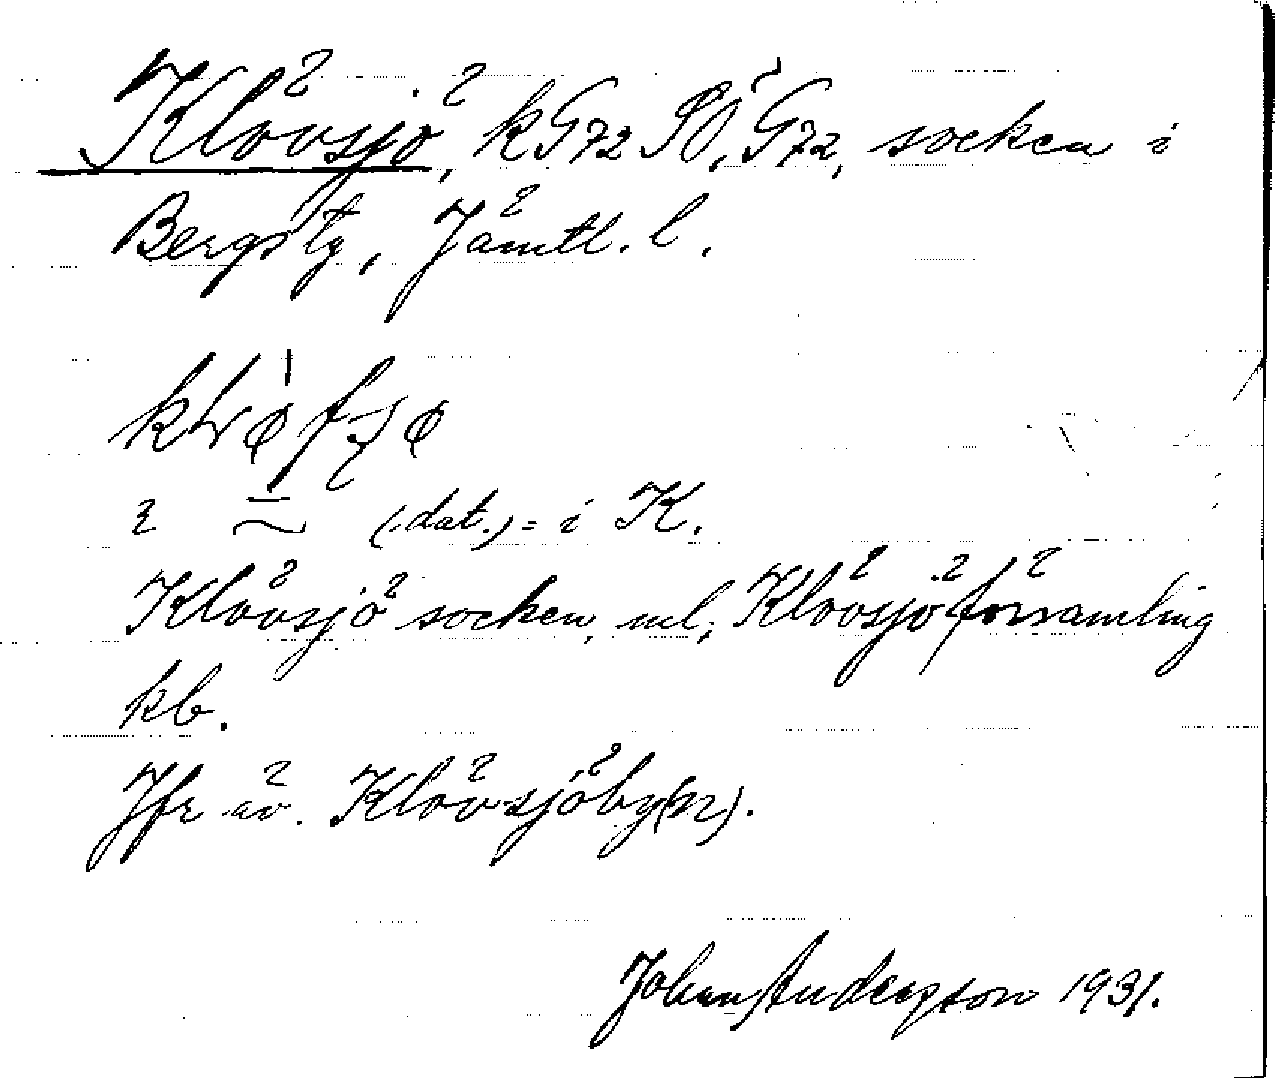 Klövsjö, kG72 SO, G72, socken i
Bergs tg, Jämtl. l.
i (dat.) = i K.
Klövsjö socken, ml; Klövsjö församling
kb.
Jfr äv. Klövsjöby(n).
Johan Anderson 1931.